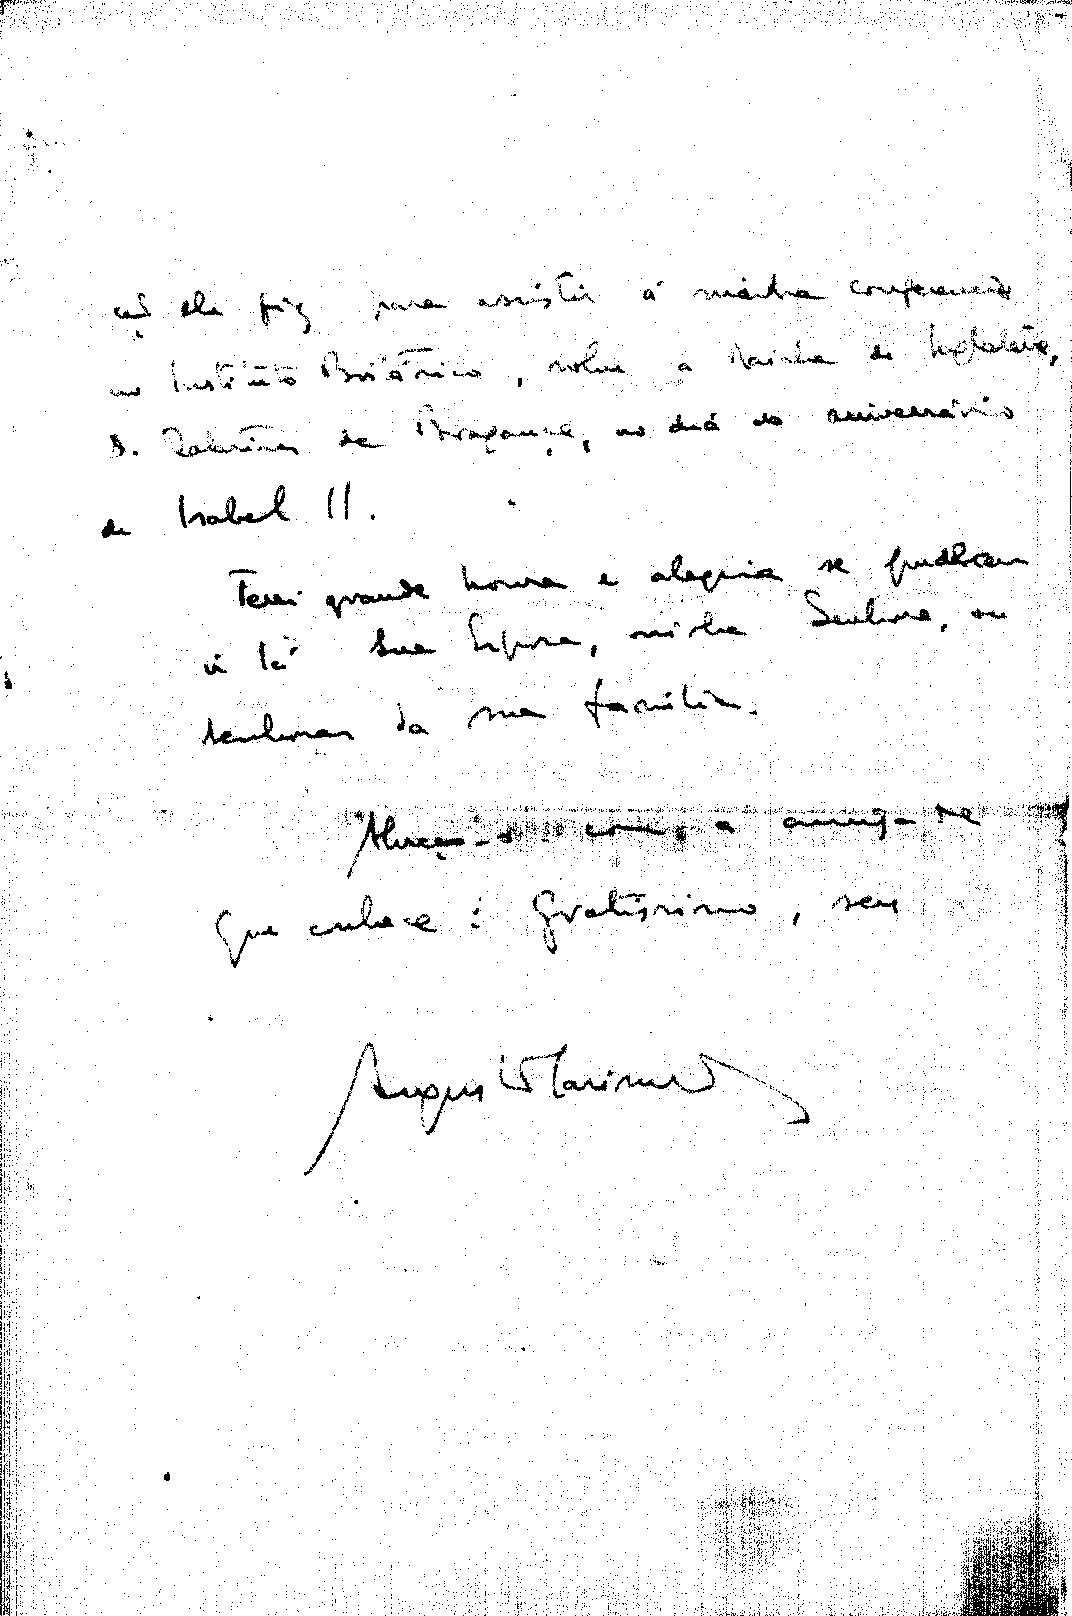 ção ela fiz para assistir á minha conferencia
no Instituto Botânico, sobre a Rainha de Inglaterra,
D. Catarina de Bragança, no dia do aniversário
de Isabel II.
Terei grande honra e alegria se puderem
ir lá Sua Esposa, minha Senhora, ou
senhoras da sua família.
Abraça-o com a amizade
que conhece: gratíssimo, seu